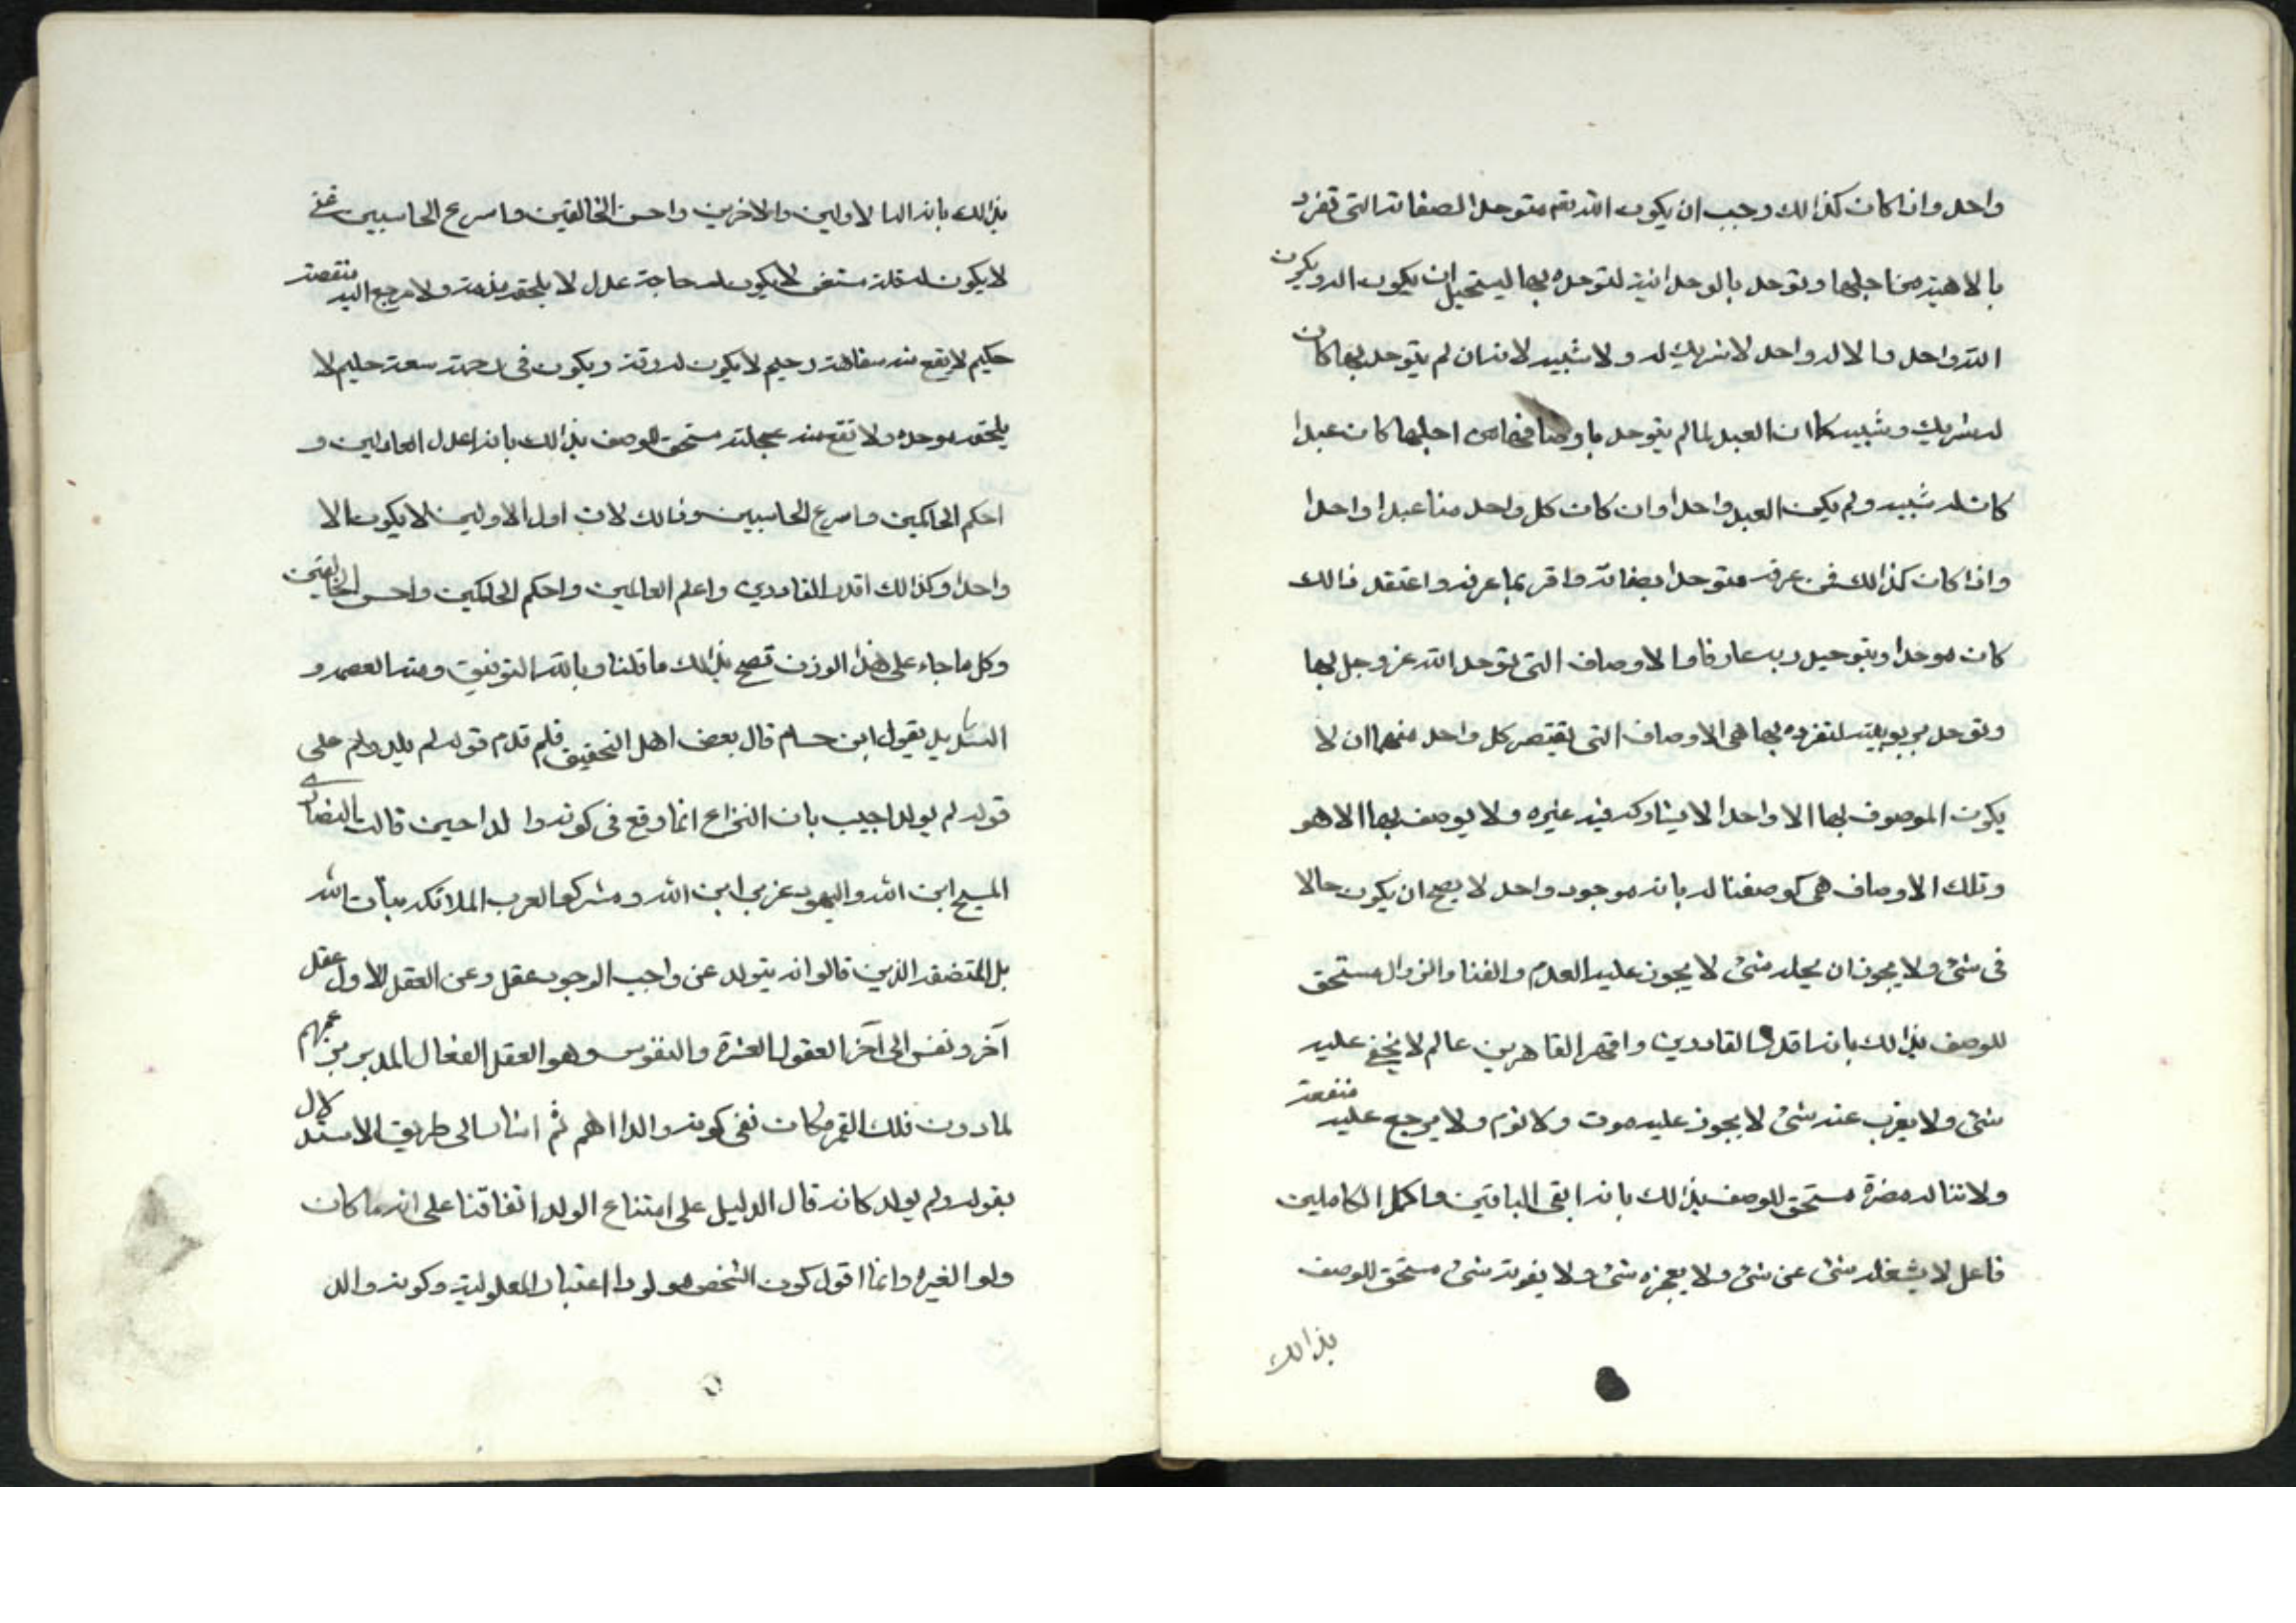 واحد واذا كان كذالك وجب ان يكون الله تعم متوحدا بصفاته التى تفرد
بالاهيته من اجلها وتوحد بالوحدانية لتوحده بها ليستحيل ان يكون اله ويكون
الله واحد والاله واحد لا شريك له ولا شبيه لانه ان لم يتوحد بها كان
له شريك وشبيه كما ان العبد لما لم يتوحد باوصافه من اجلها كان عبدا
كان له شبيه ولم يكن العبد واحدا وان كان كل واحد منا عبدا واحدا
واذا كان كذالك فمن عرفه متوحدا بصفاته واقر بما عرفه واعتقد ذالك
كان موحدا وبتوحيد ربه عارفا والاوصاف التى توحد الله عز وجل بها
وتوحد بربوبيته لتفرده بها هى الاوصاف التى يقتضى كل واحد منها ان لا
يكون الموصوف بها الا واحدا لا يشاركه فيه غيره ولا يوصف بها الا هو
وتلك الاوصاف هى كوصفنا له بانه موجود واحد لا يصح ان يكون حالا
فى شئ ولا يجوز ان يحله شئ لا يجوز عليه العدم والفنا والزوال مستحق
للوصف بذالك بانه اقدر القادرين واقهر القاهرين عالم لا يخفى عليه
شئ ولا يعزب عنه شئ لا يجوز عليه موت ولا نوم ولا يرجع عليه منفعة
ولا تناله مضرة مستحق للوصف بذالك بانه ابقى الباقين واكمل الكاملين
فاعل لا يشغله شئ عن شئ ولا يعجزه شئ ولا يفوته شئ مستحق للوصف
بذالك
بذالك بانه اله الاولين والاخرين واحسن الخالقين واسرع الحاسبين غنى
لا يكون له قلة مستغن لا يكون له حاجة عدل لا يلحقه مذمة ولا مرجع اليه منقصة
حكيم لا يقع منه سفاهة رحيم لا يكون له رقة ويكون فى رحمته سعة حليم لا
يلحقه موجده ولا تقع منه عجلة مستحق للوصف بذالك بانه اعدل العادلين و
احكم الحاكمين واسرع الحاسبين وذالك لان اول الاولين لا يكون الا
واحدا وكذالك اقدر القادرين واعلم العالمين واحكم الحاكمين واحسن الخالقين
وكل ما جاء على هذا الوزن تصح بذالك ما قلنا وبالله التوفيق ومنه العصمه و
التسديد يقول ابن حسام قال بعض اهل التحقيق فلم قدم قوله لم يلد ولم على
قوله لم يولد اجيب بان النزاع انما وقع فى كونه والدا حين قالت النصارى
المسيح ابن الله واليهود عزير ابن الله ومشركوا العرب الملائكه بنات الله
بل المتضقه الذين قالوا انه يتولد عن واجب الوجود عقل وعن العقل الاول عقل
آخر ونفس الى آخر العقول العشرة والنفوس وهو العقل الفعال المدبر بزعمهم
لما دون فلك القمر فكان نفى كونه والدا اهم ثم اشار الى طريق الاستدلال
بقوله ولم يولد كانه قال الدليل على امتناع الولد اتفاقنا على انه ما كان
ولدا لغيره وانما اقول كون الشخص مولودا اعتبار المعلولية وكونه والد